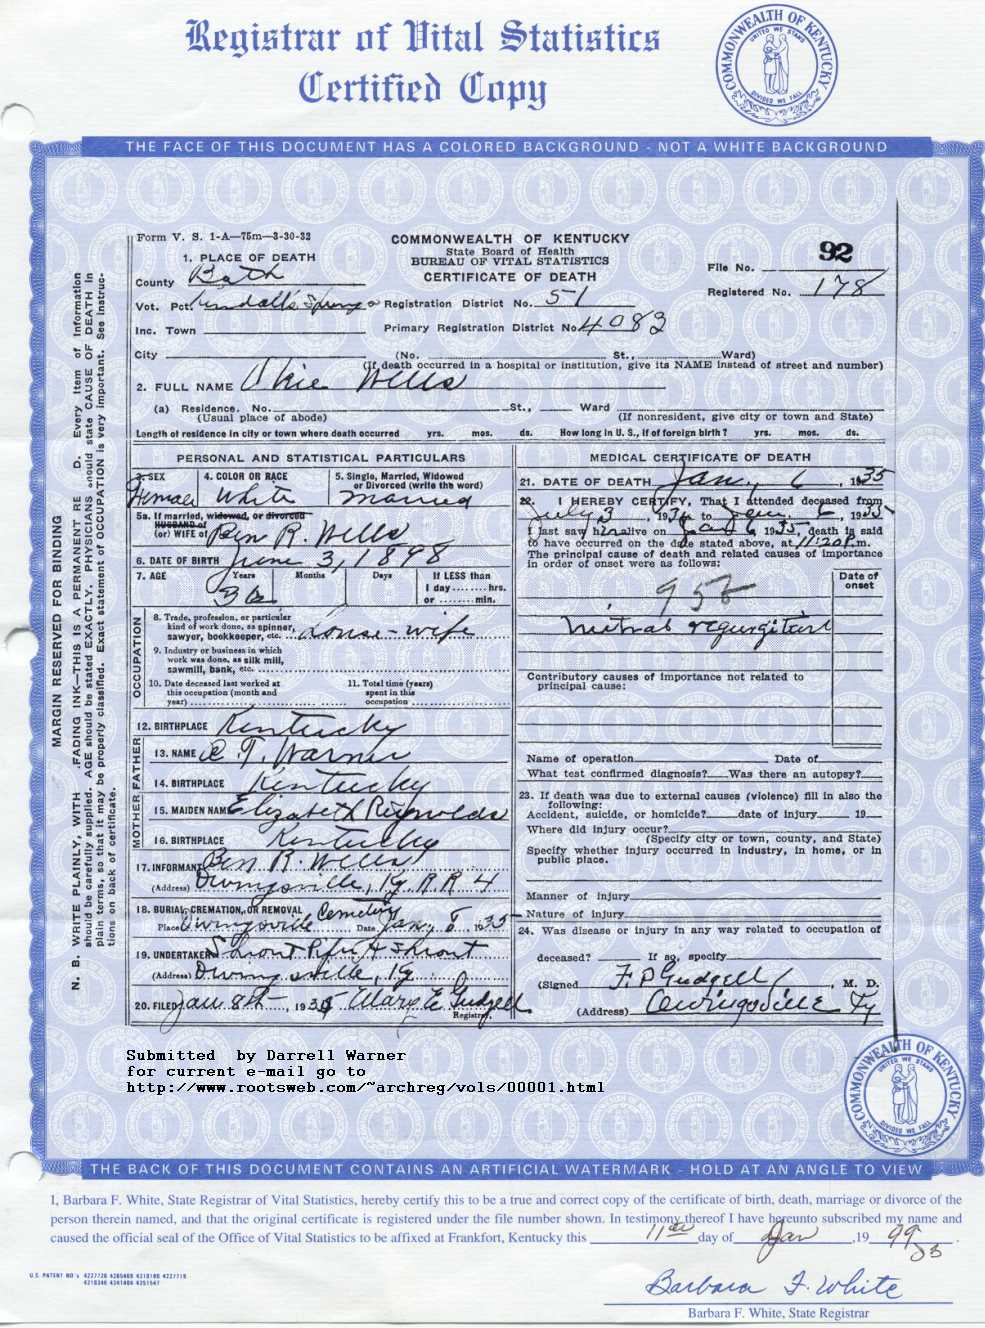 Registrar of Vital Statistics
Certified Copy
COMMONWEALTH OF KENTUCKY
UNITED WE STAND
DIVIDED WE FALL
THE FACE OF THIS DOCUMENT HAS A COLORED BACKGROUND - NOT A WHITE BACKGROUND
MARGIN RESERVED FOR BINDING
N. B. WRITE PLAINLY, WITH .FADING INK—THIS IS A PERMANENT RE D. Every item of information
should be carefully supplied. AGE should be stated EXACTLY. PHYSICIANS should state CAUSE OF DEATH in
plain terms, so that it may be properly classified. Exact statement of OCCUPATION is very important. See instruc-
tions on back of certificate.
Form V. S. 1-A—75m—3-30-32
COMMONWEALTH OF KENTUCKY
State Board of Health
BUREAU OF VITAL STATISTICS
CERTIFICATE OF DEATH
File No. 92
Registered No. 178
1. PLACE OF DEATH
County Bath
Vot. Pct. Kendall's Springs
Registration District No. 51
Inc. Town
Primary Registration District No. 4083
City (No. St., Ward)
(If death occurred in a hospital or institution, give its NAME instead of street and number)
2. FULL NAME Okie Wells
(a) Residence. No. St., Ward
(Usual place of abode) (If nonresident, give city or town and State)
Length of residence in city or town where death occurred yrs. mos. ds. How long in U. S., if of foreign birth? yrs. mos. ds.
PERSONAL AND STATISTICAL PARTICULARS
3. SEX Female
4. COLOR OR RACE White
5. Single, Married, Widowed or Divorced (write the word) Married
5a. If married, widowed, or divorced
HUSBAND of
(or) WIFE of Ben R. Wells
6. DATE OF BIRTH June 3, 1898
7. AGE Years Months Days If LESS than
36 1 day ........ hrs.
or ........ min.
OCCUPATION
8. Trade, profession, or particular
kind of work done, as spinner,
sawyer, bookkeeper, etc. House-wife
9. Industry or business in which
work was done, as silk mill,
sawmill, bank, etc.
10. Date deceased last worked at
this occupation (month and
year)
11. Total time (years)
spent in this
occupation
12. BIRTHPLACE Kentucky
FATHER
13. NAME C. T. Warner
14. BIRTHPLACE Kentucky
MOTHER
15. MAIDEN NAME Elizabeth Reynolds
16. BIRTHPLACE Kentucky
17. INFORMANT Ben R. Wells
(Address) Owingsville, Ky R R 4
18. BURIAL, CREMATION, OR REMOVAL Cemetery
Place Owingsville Date Jan, 8 1935
19. UNDERTAKER Shrout & Shrout
(Address) Owingsville, Ky
20. FILED Jan 8th, 1935 Mary E Gudgell
Registrar.
MEDICAL CERTIFICATE OF DEATH
21. DATE OF DEATH Jan, 6, 1935
22. I HEREBY CERTIFY, That I attended deceased from
July 3, 1934 to Jan. 6, 1935
I last saw her alive on Jan 6 1935, death is said
to have occurred on the date stated above, at 11:20 P.m.
The principal cause of death and related causes of importance
in order of onset were as follows:
Date of
onset
Mitral regurgitant
Contributory causes of importance not related to
principal cause:
Name of operation Date of
What test confirmed diagnosis? Was there an autopsy?
23. If death was due to external causes (violence) fill in also the
following:
Accident, suicide, or homicide? date of injury 19
Where did injury occur?
(Specify city or town, county, and State)
Specify whether injury occurred in industry, in home, or in
public place.
Manner of injury
Nature of injury
24. Was disease or injury in any way related to occupation of
deceased? If so, specify
(Signed F. P Gudgell, M. D.
(Address) Owingsville Ky
Submitted by Darrell Warner
for current e-mail go to
http://www.rootsweb.com/~archreg/vols/00001.html
COMMONWEALTH OF KENTUCKY
UNITED WE STAND
DIVIDED WE FALL
THE BACK OF THIS DOCUMENT CONTAINS AN ARTIFICIAL WATERMARK - HOLD AT AN ANGLE TO VIEW
I, Barbara F. White, State Registrar of Vital Statistics, hereby certify this to be a true and correct copy of the certificate of birth, death, marriage or divorce of the
person therein named, and that the original certificate is registered under the file number shown. In testimony thereof I have hereunto subscribed my name and
caused the official seal of the Office of Vital Statistics to be affixed at Frankfort, Kentucky this 11th day of Jan, 19 99.
U.S. PATENT NO's
Barbara F. White
Barbara F. White, State Registrar